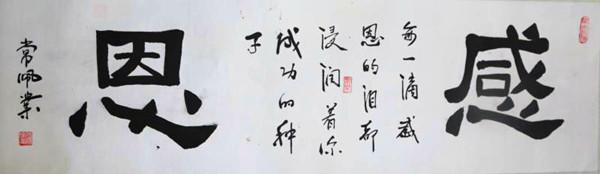 感
每一滴感
恩的泪都
浸润着你
成功的种
子
恩
常佩业